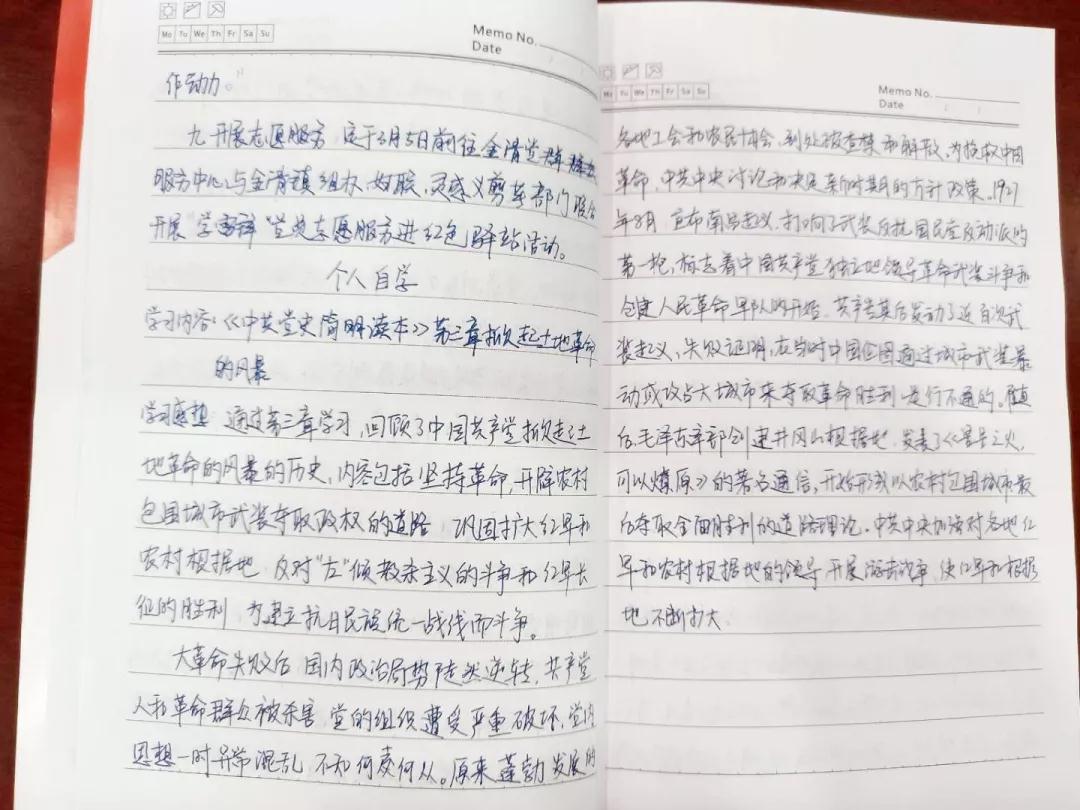 Mo Tu We Th Fr Sa Su
Memo No.
Date
作动力。"
九 开展志愿服务 定于3月5日前往金滑党群
服务中心与金滑镇组织、妇联、灵感义剪等部门联合
开展"学雷锋"党员志愿服务进红色驿站活动。
个人自学
学习内容:《中共党史简明读本》第三章掀起土地革命
的风暴
学习感想 通过第三章学习,回顾了中国共产党掀起土
地革命的风暴的历史,内容包括坚持革命,开辟农村
包围城市武装夺取政权的道路 巩固扩大红军和
农村根据地 反对"左"倾教条主义的斗争和红军长
征的胜利,为建立抗日民族统一战线而斗争。
大革命失败后 国内政治局势陡然逆转,共产党
人和革命群众被杀害 党的组织遭受严重破坏,党内
思想一时异常混乱 不知何去何从。原来蓬勃发展的
Mo Tu We Th Fr Sa Su
Memo No.
Date
各地工会和农民协会,到处被查禁和解散。为挽救中国
革命,中共中央讨论和决定新时期的方针政策。1927
年8月,宣布南昌起义,打响了武装反抗国民党反动派的
第一枪,标志着中国共产党独立地领导革命武装斗争和
创建人民革命军队的开始。共产党其后发动了近百次武
装起义,失败证明,在当时中国企图通过城市武装暴
动或攻占大城市来夺取革命胜利是行不通的。随
后毛泽东率部创建井冈山根据地,发表了《星星之火,
可以燎原》的著名通信,开始形成以农村包围城市最
后夺取全面胜利的道路理论。中共中央加强对各地红
军和农村根据地的领导 开展游击战争,使红军和根据
地不断扩大.